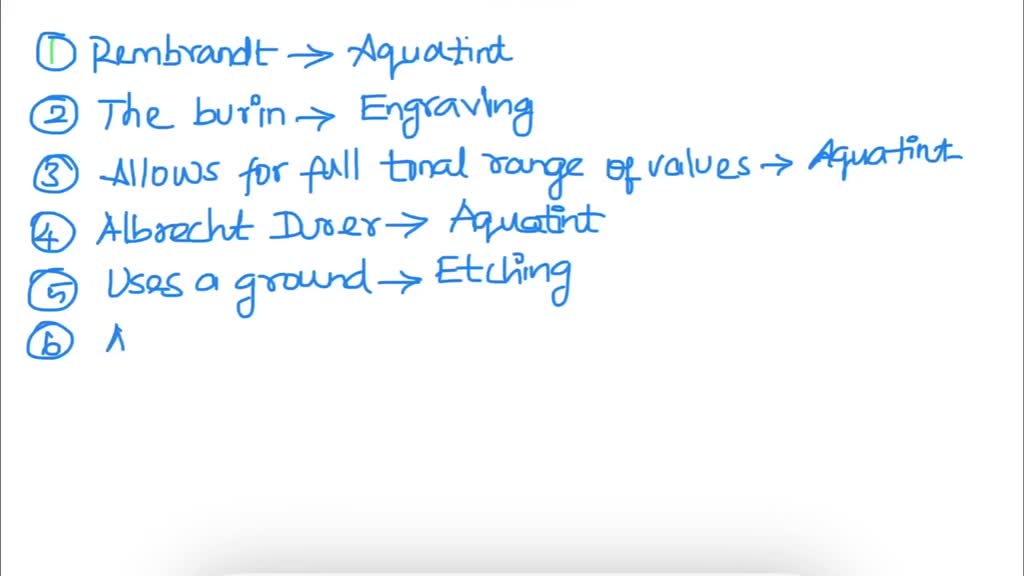 ① Rembrandt → Aquatint
② The burin → Engraving
③ Allows for full tonal range of values → Aquatint
④ Albrecht Durer → Aquatint
⑤ Uses a ground → Etching
⑥ A